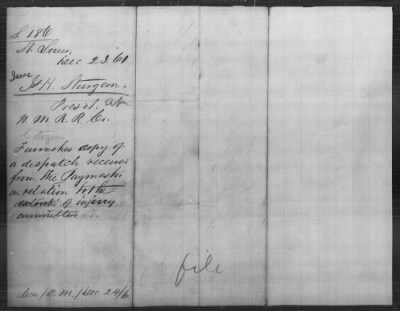 S 186
St Louis,
Dec 23. 61
Isaac H. Sturgeon,
Presdt
N. M. R. R. Co.
Furnishes copy of
a despatch received
from the Paymaster
in relation to the
extent of injury
committed
file
Rec (H. M.) Dec. 24/61